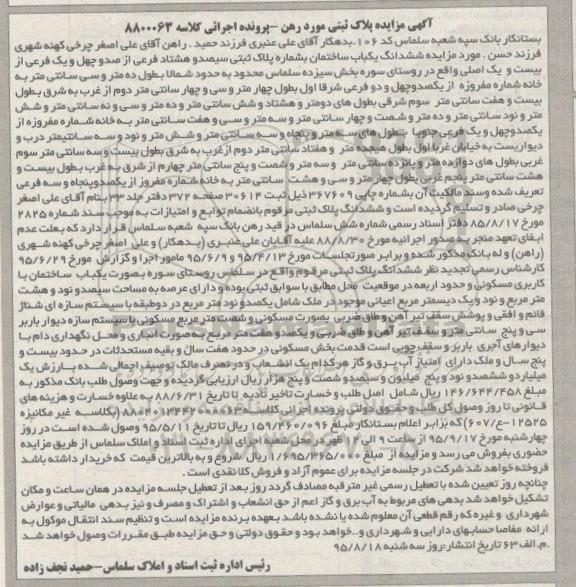 آگهی مزایده پلاک ثبتی مورد رهن -پرونده اجرائی کلاسه ۸۸۰۰۰۶۳
بستانکار بانک سپه شعبه سلماس کد ۱۰۶.بدهکار آقای علی عنبری فرزند حمید . راهن آقای علی اصغر چرخی کهنه شهری
فرزند حسن . مورد مزایده ششدانگ یکباب ساختمان بشماره پلاک ثبتی سیصدو هشتاد فرعی از صدو چهل و یک فرعی از
بیست و یک اصلی واقع در روستای سوره بخش سیزده سلماس محدود به حدود شمالا بطول ده متر و سی سانتی متر به
خانه شماره مفروزه از یکصدوچهل و دو فرعی شرقا اول بطول چهار متر و سی و چهار سانتی متر دوم از غرب به شرق بطول
بیست و هفت سانتی متر سوم شرقی بطول های دومتر و هشتاد و شش سانتی متر و ده متر و سی و نه سانتی متر و شش
متر و نود سانتی متر و ده متر و شصت و چهار سانتی متر و سه متر و سی و هفت سانتی متر به خانه شماره مفروزه از
یکصدوچهل و یک فرعی جنوبا بطول های سه متر و پنجاه و سه سانتی متر و شش متر و نود و سه سانتیمتر درب و
دیواریست به خیابان غربا اول بطول هیجده متر و هفتاد سانتی متر دوم ازغرب به شرق بطول بیست و سه سانتی متر سوم
غربی بطول های دوازده متر و پانزده سانتی متر و سه متر و شصت و پنج سانتی متر چهارم از شرق به غرب بطول بیست و
هشت سانتی متر پنجم غربی بطول چهار متر و سی و هشت سانتی متر به خانه شماره مفروز از یکصدوپنجاه و سه فرعی
تعریف شده وسند مالکیت آن بشماره چاپی ۳۶۷۶۰۹ ذیل ثبت ۳۰۶۱۴ صفحه ۳۷۲ دفتر جلد ۳۳ بنام آقای علی اصغر
چرخی صادر و تسلیم گردیده است و ششدانگ پلاک ثبتی مرقوم بانضمام توابع و امتیازات به موجب سند شماره ۲۸۲۵
مورخ ۸۵/۸/۱۷ دفتر اسناد رسمی شماره شش سلماس در قید رهن بانک سپه شعبه سلماس قرار دارد که بعلت عدم
ایفای تعهد منجر به صدور اجرائیه مورخ ۸۸/۸/۳۰ علیه آقایان علی عنبری (بدهکار) و علی اصغر چرخی کهنه شهری
(راهن) و له بانک مذکور شده و برابر صورتجلسات مورخ ۹۵/۴/۱۳ و ۹۵/۶/۹ مامور اجرا و گزارش مورخ ۹۵/۶/۲۹
کارشناس رسمی تجدید نظر ششدانگ پلاک ثبتی مرقوم واقع در سلماس روستای سوره بصورت یکباب ساختمان با
کاربری مسکونی و حدود اربعه در موقعیت محل مطابق با سوابق ثبتی بوده و دارای عرصه به مساحت سیصدو نود و هشت
متر مربع و نود ویک دسیمتر مربع اعیانی موجود در ملک شامل یکصدو نود متر مربع در دوطبقه با سیستم سازه ای شناژ
قائم و افقی و پوشش سقف تیر آهن و طاق ضربی بصورت مسکونی و شصت متر مربع مسکونی با سیستم سازه دیوار باربر
سی و پنج سانتی متر و سقف تیر آهن و طاق ضربی و یکصدو هفت متر مربع به صورت انباری و محل نگهداری دام با
دیوارهای آجری باربر و سقف چوبی است قدمت بخش مسکونی در حدود هفت سال و بقیه مستحدثات در حدود بیست و
پنج سال و ملک دارای امتیاز آب ,برق و گاز هر کدام یک انشعاب و در تصرف مالک توصیف اجمالی شده بارزش یک
میلیارد و ششصدو نود و پنج میلیون و سیصدو شصت و پنج هزار ریال ارزیابی گردیده و جهت وصول طلب بانک مذکور به
مبلغ ۱۴۶/۶۴۴/۴۵۸ ریال شامل اصل طلب و خسارت تاخیر تادیه تا تاریخ ۸۸/۶/۳۱ به علاوه خسارت و هزینه های
قانونی تا روز وصول کل طلب و حقوق دولتی پرونده اجرائی کلاسه ۸۸۰۴۰۱۳۴۴۲۰۰۰۰۶۳ (بکلاسه غیر مکانیزه
۱۲۵۲۵-ع/۶۰۷) که برابر اعلام بستانکار مبلغ ۱۵۹/۴۶۰/۰۹۶ ریال تا تاریخ ۹۵/۵/۱۱ وصول شده است در روز
چهارشنبه مورخ ۹۵/۹/۱۷ از ساعت ۹ الی ۱۲ ظهر در محل شعبه اجرای اداره ثبت اسناد و املاک سلماس از طریق مزایده
حضوری بفروش می رسد و مزایده از مبلغ ۱/۶۹۵/۳۶۵/۰۰۰ ریال شروع و به بالاترین قیمت که خریدار داشته باشد
فروخته خواهد شد شرکت در جلسه مزایده برای عموم آزاد و فروش کلا نقدی است .
چنانچه روز تعیین شده با تعطیل رسمی غیر مترقبه مصادف گردد روز بعد از تعطیل جلسه مزایده در همان ساعت و مکان
تشکیل خواهد شد بدهی های مربوط به آب برق و گاز اعم از حق انشعاب و اشتراک و مصرف و نیز بدهی مالیاتی و عوارض
شهرداری و غیره که رقم قطعی آن معلوم شده یا نشده باشد بعهده برنده مزایده است و تنظیم سند انتقال موکول به
ارائه مفاصا حسابهای دارایی و شهرداری و..خواهد بود و حقوق دولتی و حق مزایده طبق مقررات وصول خواهد شد
.م.الف ۶۳ تاریخ انتشار:روز سه شنبه ۹۵/۸/۱۸
رئیس اداره ثبت اسناد و املاک سلماس-حمید نجف زاده